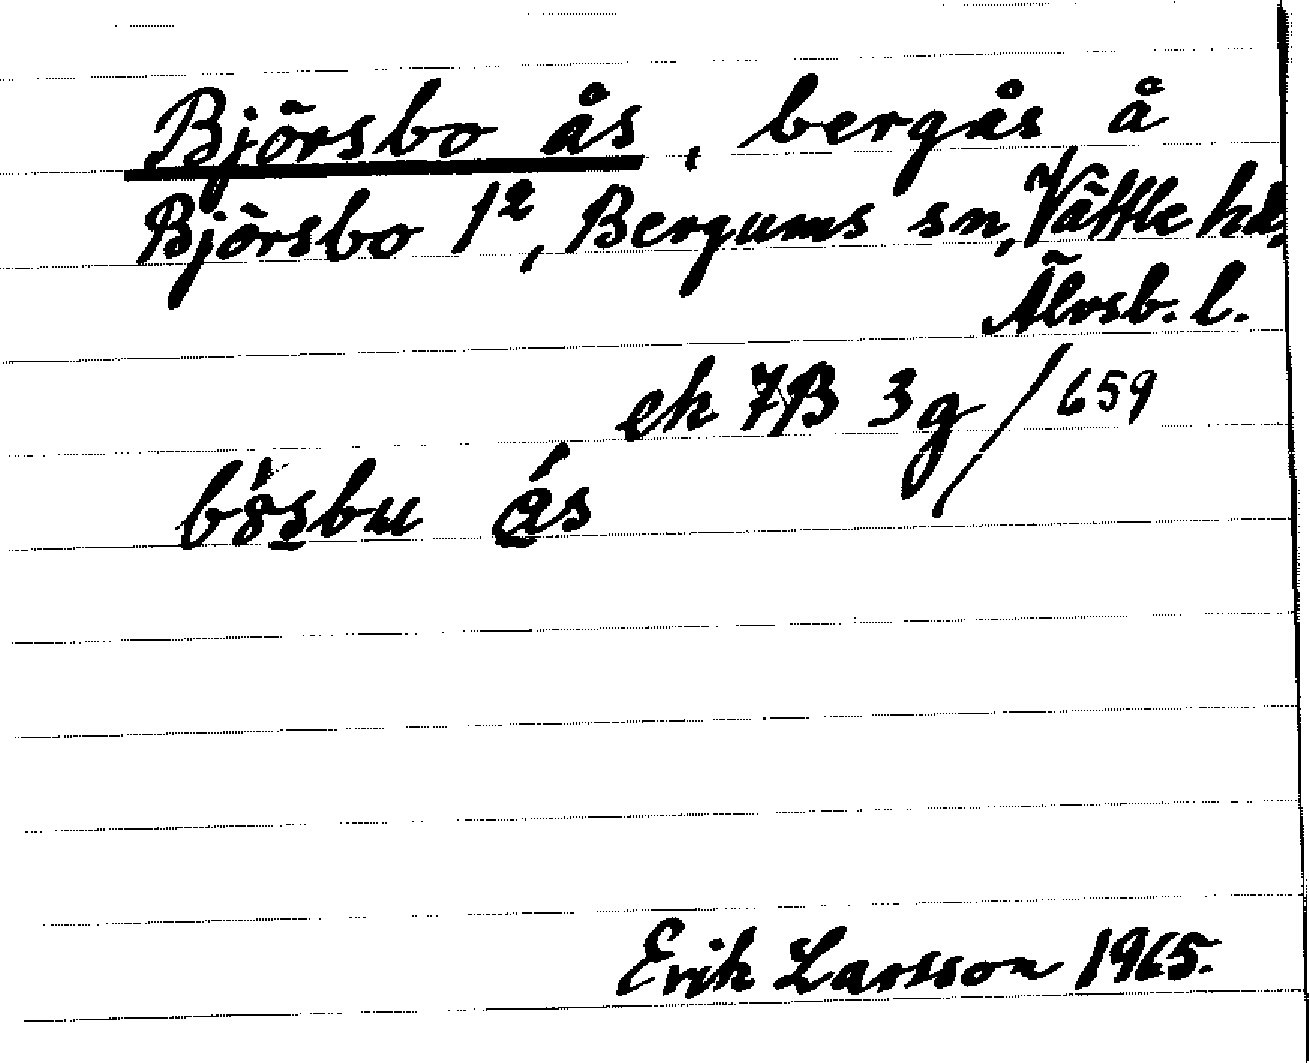 Björsbo ås, bergås å
Björsbo 1², Bergums sn, Vättle hd,
Älvsb. l.
ek 7B 3g/659
bö́sbu ás
Erik Larsson 1965.